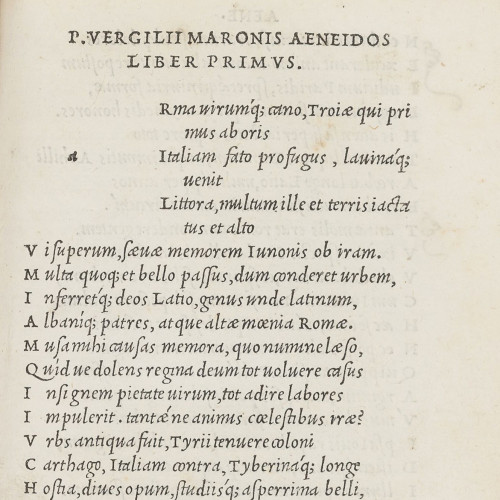 P. VERGILII MARONIS AENEIDOS
LIBER PRIMVS.
Rma uirumq́; cano, Troiæ qui pri
mus ab oris
a Italiam fato profugus, lauinaq́;
uenit
Littora, multum ille et terris iacta
tus et alto
V i superum, sæuæ memorem Iunonis ob iram.
M ulta quoq; et bello passus, dum conderet urbem,
I nferretq́; deos Latio, genus unde latinum,
A lbaniq́; patres, atque altæ mœnia Romæ.
M usa mihi causas memora, quo numine læso,
Q uid ue dolens regina deum tot uoluere casus
I nsignem pietate uirum, tot adire labores
I mpulerit. tantæ ne animus cœlestibus iræ?
V rbs antiqua fuit, Tyrii tenuere coloni
C arthago, Italiam contra, Tyberinaq́; longe
H ostia, diues opum, studiisq́; asperrima belli,